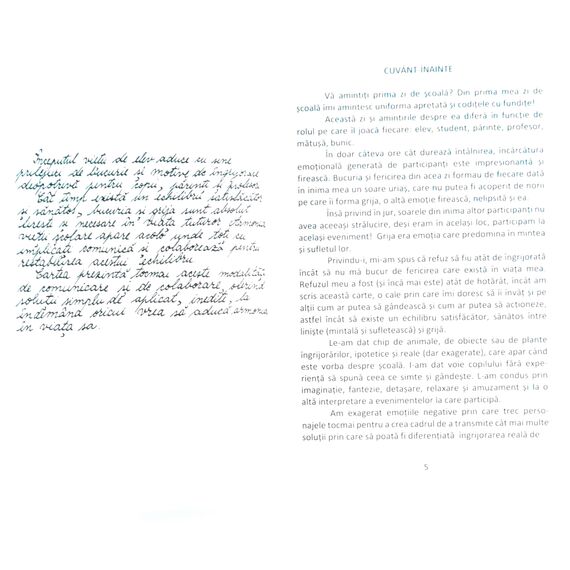 Începutul vieții de elev aduce cu sine
prilejuri de bucurie și motive de îngrijorare
deopotrivă pentru copii, părinți și profesori.
Cât timp există un echilibru satisfăcător
și sănătos, bucuria și grija sunt absolut
firești și necesare în viața tuturor. Armonia
vieții școlare apare acolo unde toți cei
implicați comunică și colaborează pentru
restabilirea acestui echilibru.
Cartea prezintă tocmai aceste modalități
de comunicare și de colaborare, oferind
soluții simplu de aplicat, inedite, la
îndemâna oricui vrea să aducă armonia
în viața sa.
CUVÂNT ÎNAINTE
Vă amintiți prima zi de școală? Din prima mea zi de
școală îmi amintesc uniforma apretată și codițele cu fundițe!
Această zi și amintirile despre ea diferă în funcție de
rolul pe care îl joacă fiecare: elev, student, părinte, profesor,
mătușă, bunic.
În doar câteva ore cât durează întâlnirea, încărcătura
emoțională generată de participanți este impresionantă și
firească. Bucuria și fericirea din acea zi formau de fiecare dată
în inima mea un soare uriaș, care nu putea fi acoperit de norii
pe care îi forma grija, o altă emoție, nelipsită și ea.
Însă privind în jur, soarele din inima altor participanți nu
avea aceeași strălucire, deși eram în același loc, participam la
același eveniment! Grija era emoția care predomina în mintea
și sufletul lor.
Privindu-i, mi-am spus că refuz să fiu atât de îngrijorată
încât să nu mă bucur de fericirea care există în viața mea.
Refuzul meu a fost (și încă mai este) atât de hotărât, încât am
scris această carte, o cale prin care îmi doresc să îi învăț și pe
alții cum ar putea să gândească și cum ar putea să acționeze,
astfel încât să existe un echilibru satisfăcător, sănătos între
liniște (mintală și sufletească) și grijă.
Le-am dat chip de animale, de obiecte sau de plante
îngrijorărilor, ipotetice și reale (dar exagerate), care apar când
este vorba despre școală. I-am dat voie copilului fără expe-
riență să spună ceea ce simte și gândește. L-am condus prin
imaginație, fantezie, detașare, relaxare și amuzament și la o
altă interpretare a evenimentelor la care participă.
Am exagerat emoțiile negative prin care trec perso-
najele tocmai pentru a crea cadrul de a transmite cât mai multe
soluții prin care să poată fi diferențiată îngrijorarea reală de
5